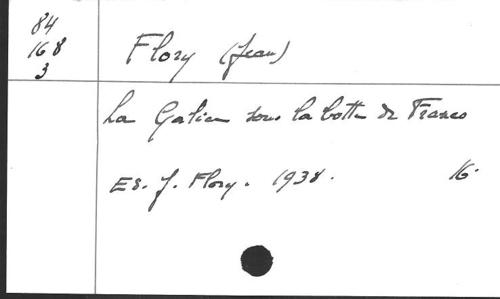 84
168
3
Flory (Jean)
La Galice sous la botte de Franco
Ed. J. Flory. 1938. 16.